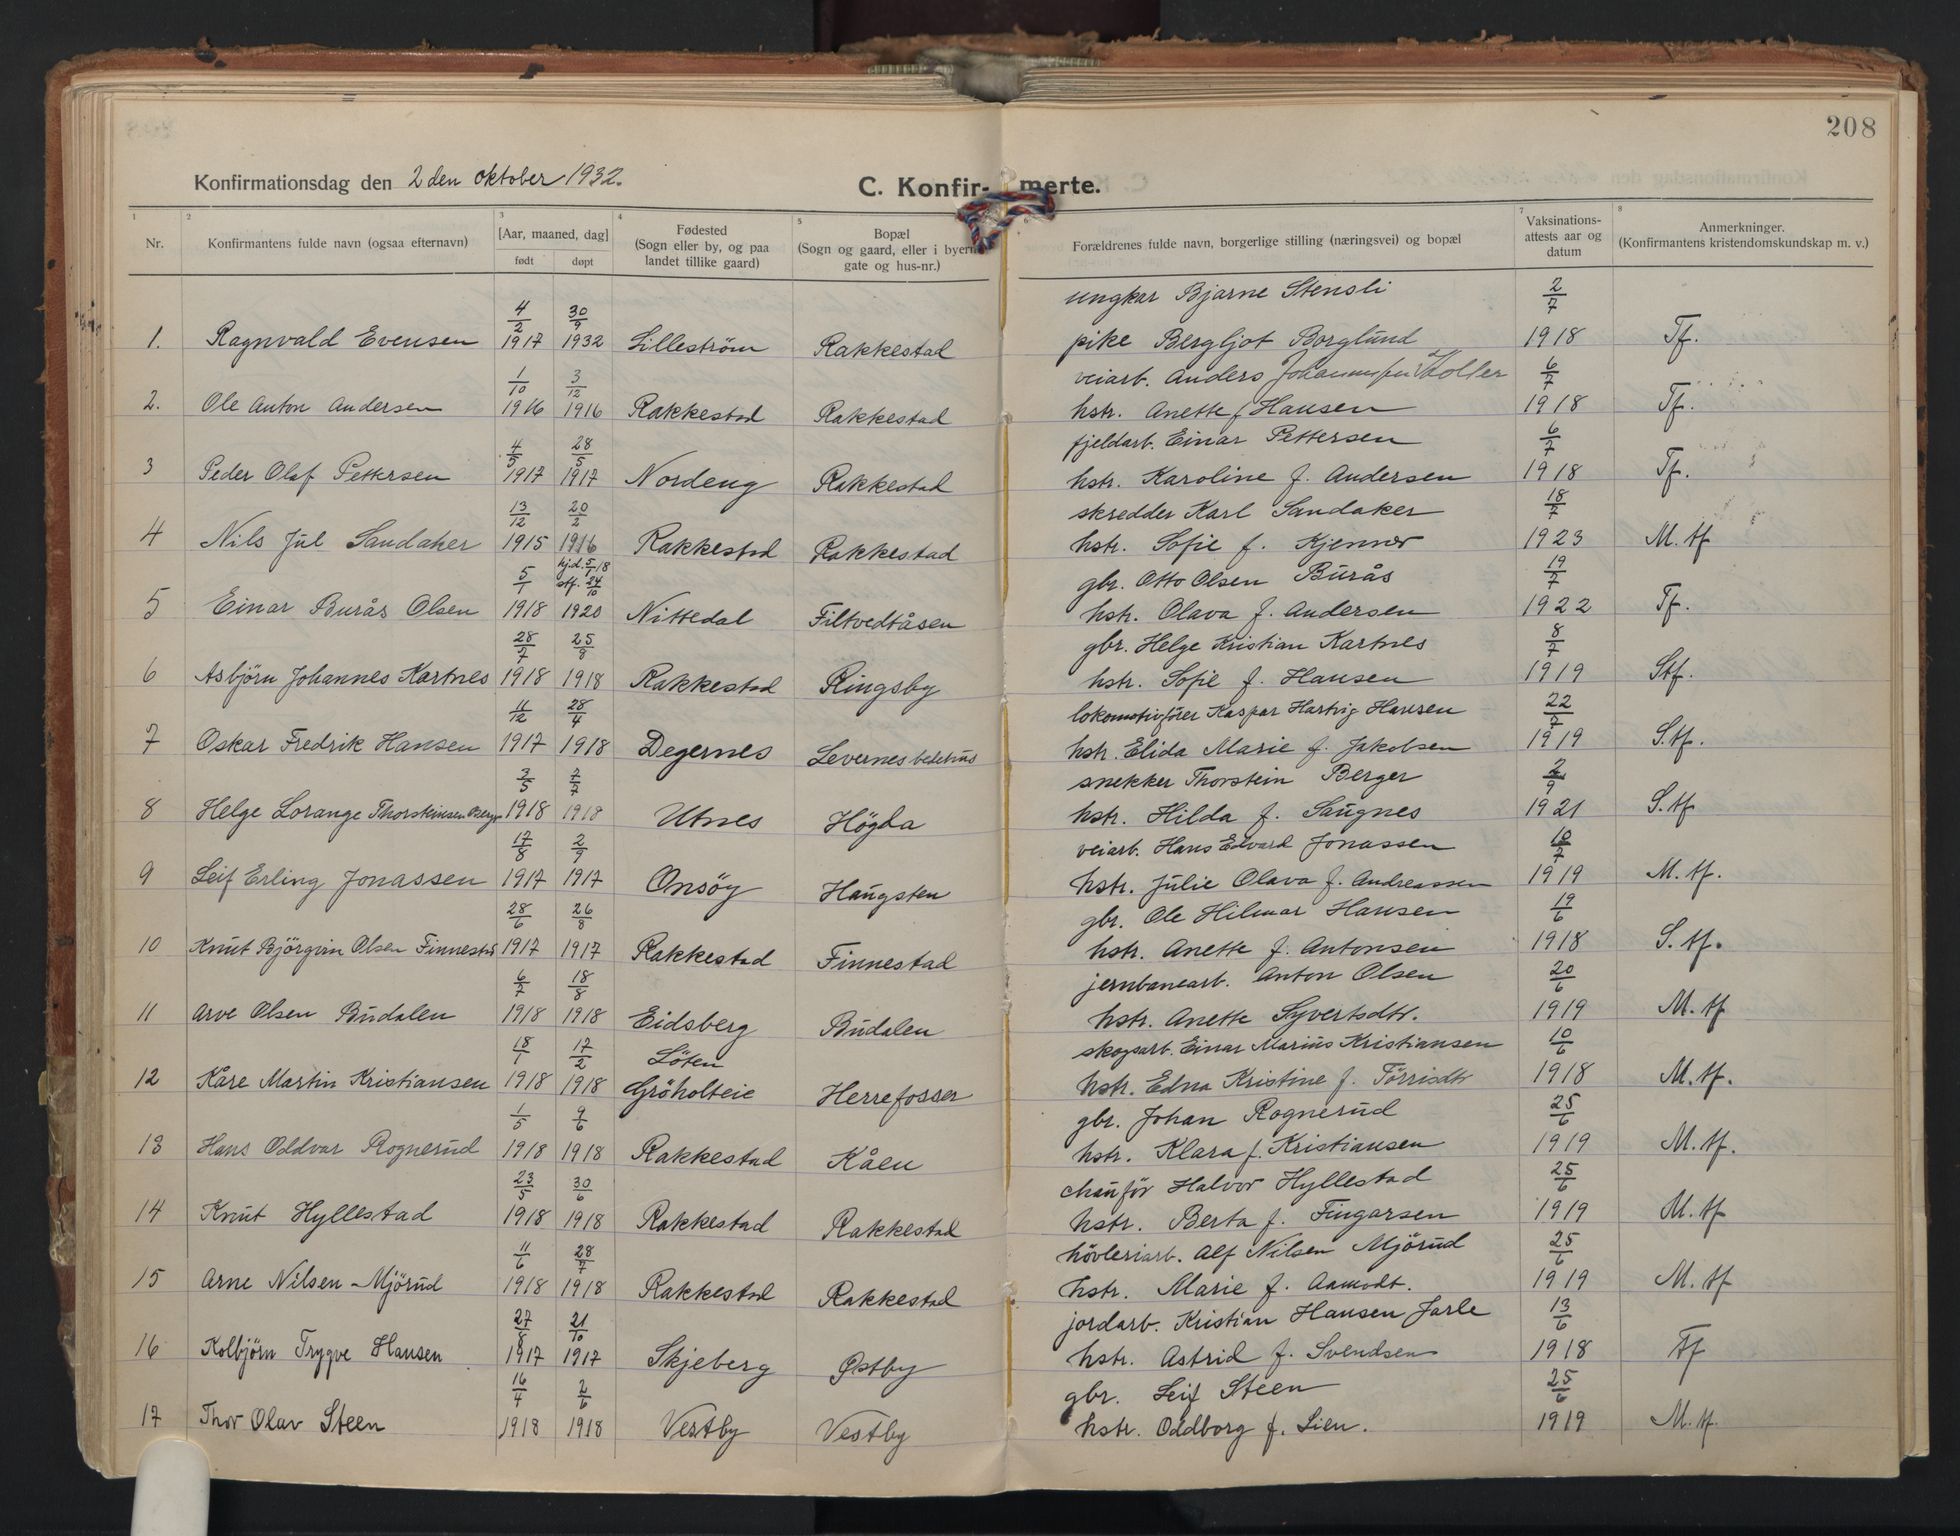 208
Konfirmationsdag den 2 den oktober 1932.
C. Konfir- merte.
1 2 3 4 5 6 7 8
Nr.
Konfirmantens fulde navn (ogsaa efternavn)
[Aar, maaned, dag]
født døpt
Fødested
(Sogn eller by, og paa
landet tillike gaard)
Bopæl
(Sogn og gaard, eller i byerne
gate og hus-nr.)
Forældrenes fulde navn, borgerlige stilling (næringsvei) og bopæl
Vaksinations-
attests aar og
datum
Anmerkninger.
(Konfirmantens kristendomskundskap m. v.)
4/2 30/9 ungkar Bjarne Stensli 2/7
1. Ragnvald Evensen 1917 1932 Lilleström Rakkestad pike Bergljot Borglund 1918 Tf.
1/10 3/12 veiarb. Anders Johannesen Koller 6/7
2. Ole Anton Andersen 1916 1916 Rakkestad Rakkestad hstr. Anette f. Hansen 1918 Tf.
4/5 28/5 fjeldarb. Einar Pettersen 6/7
3 Peder Olaf Pettersen 1917 1917 Nordeng Rakkestad hstr. Karoline f. Andersen 1918 Tf.
13/12 20/2 skredder Karl Sandaker 18/7
4 Nils Jul Sandaker 1915 1916 Rakkestad Rakkestad hstr. Sofie f. Kjenner 1923 M. tf
5/1 hjd. 5/1 18 stf. 24/10 gbr. Otto Olsen Burås 19/7
5 Einar Burås Olsen 1918 1920 Nittedal Filtvedtåsen hstr. Olava f. Andersen 1922 Tf.
28/7 25/8 gbr. Helge Kristian Kartnes 8/7
6 Asbjörn Johannes Kartnes 1918 1918 Rakkestad Ringsby hstr. Sofie f. Hansen 1919 Stf.
11/12 28/4 lokomotivfører Kaspar Hartvig Hansen 22/7
7 Oskar Fredrik Hansen 1917 1918 Degernes Levernes bedehus hstr. Elida Marie f. Jakobsen 1919 S. tf.
3/5 7/7 snekker Thorstein Berger 2/9
8 Helge Lorange Thorsteinsen Berger 1918 1918 Utnes Högda hstr. Hilda f. Saugnes 1921 S. tf
17/8 2/9 veiarb. Hans Edvard Jonassen 10/7
9 Leif Erling Jonassen 1917 1917 Onsöy Haugsten hstr. Julie Olava f. Andreassen 1919 M. tf.
28/6 26/8 gbr. Ole Hilmar Hansen 19/6
10 Knut Björgvin Olsen Finnestad 1917 1917 Rakkestad Finnestad hstr. Anette f. Antonsen 1918 S. tf.
6/7 18/8 jernbanearb. Anton Olsen 20/6
11 Arve Olsen Budalen 1918 1918 Eidsberg Budalen hstr. Anette Syvertsdtr. 1919 M. tf
18/1 17/2 Löten skogsarb. Einar Marius Kristiansen 10/6
12 Kåre Martin Kristiansen 1918 1918 Gröholteie Herrefosser hstr. Edna Kristine f. Törrisdtr 1918 M. tf.
1/5 9/6 gbr. Johan Rognerud 25/6
13 Hans Oddvar Rognerud 1918 1918 Rakkestad Kåen hstr. Klara f. Kristiansen 1919 M. tf.
23/5 30/6 chauför Halvor Hyllestad 25/6
14 Knut Hyllestad 1918 1918 Rakkestad Rakkestad hstr. Berta f. Fingarsen 1919 M. tf
11/6 28/7 hövleriarb. Alf Nilsen Mjörud 25/6
15 Arne Nilsen - Mjörud 1918 1918 Rakkestad Rakkestad hstr. Marie f. Aamodt. 1919 M. tf
27/8 21/10 jordarb. Kristian Hansen Jarle 13/6
16 Kolbjörn Trygve Hansen 1917 1917 Skjeberg Østby hstr. Astrid f. Svendsen 1918 Tf
16/4 2/6 gbr. Leif Steen 25/6
17 Thor Olav Steen 1918 1918 Vestby Vestby hstr. Oddborg f. Lien. 1919 M. tf.